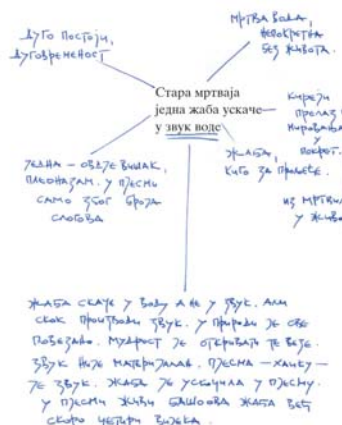 ДУГО ПОСТОЈИ,
ДУГОВРЕМЕНОСТ
МРТВА ВОДА,
НЕПОКРЕТНА
БЕЗ ЖИВОТА.
Стара мртваја
једна жаба ускаче
у звук воде
КИРЕЏИ
ПРЕЛАЗ
МИРОВАЊА
У
ПОКРЕТ.
ИЗ МРТВИЛА
У ЖИВО
ЖАБА,
КИГО ЗА ПРОЉЕЋЕ.
ЈЕДНА – ОВДЈЕ ВИШАК,
ПЛЕОНАЗАМ. У ПЈЕСМИ
САМО ЗБОГ БРОЈА
СЛОГОВА
ЖАБА СКАЧЕ У ВОДУ А НЕ У ЗВУК. АЛИ
СКОК ПРОИЗВОДИ ЗВУК. У ПРИРОДИ ЈЕ СВЕ
ПОВЕЗАНО. МУДРОСТ ЈЕ ОТКРИВАТИ ТЕ ВЕЗЕ.
ЗВУК НИЈЕ МАТЕРИЈАЛАН. ПЈЕСМА – ХАИКУ –
ЈЕ ЗВУК. ЖАБА ЈЕ УСКОЧИЛА У ПЈЕСМУ.
У ПЈЕСМИ ЖИВИ БАШООВА ЖАБА ВЕЋ
СКОРО ЧЕТИРИ ВИЈЕКА.